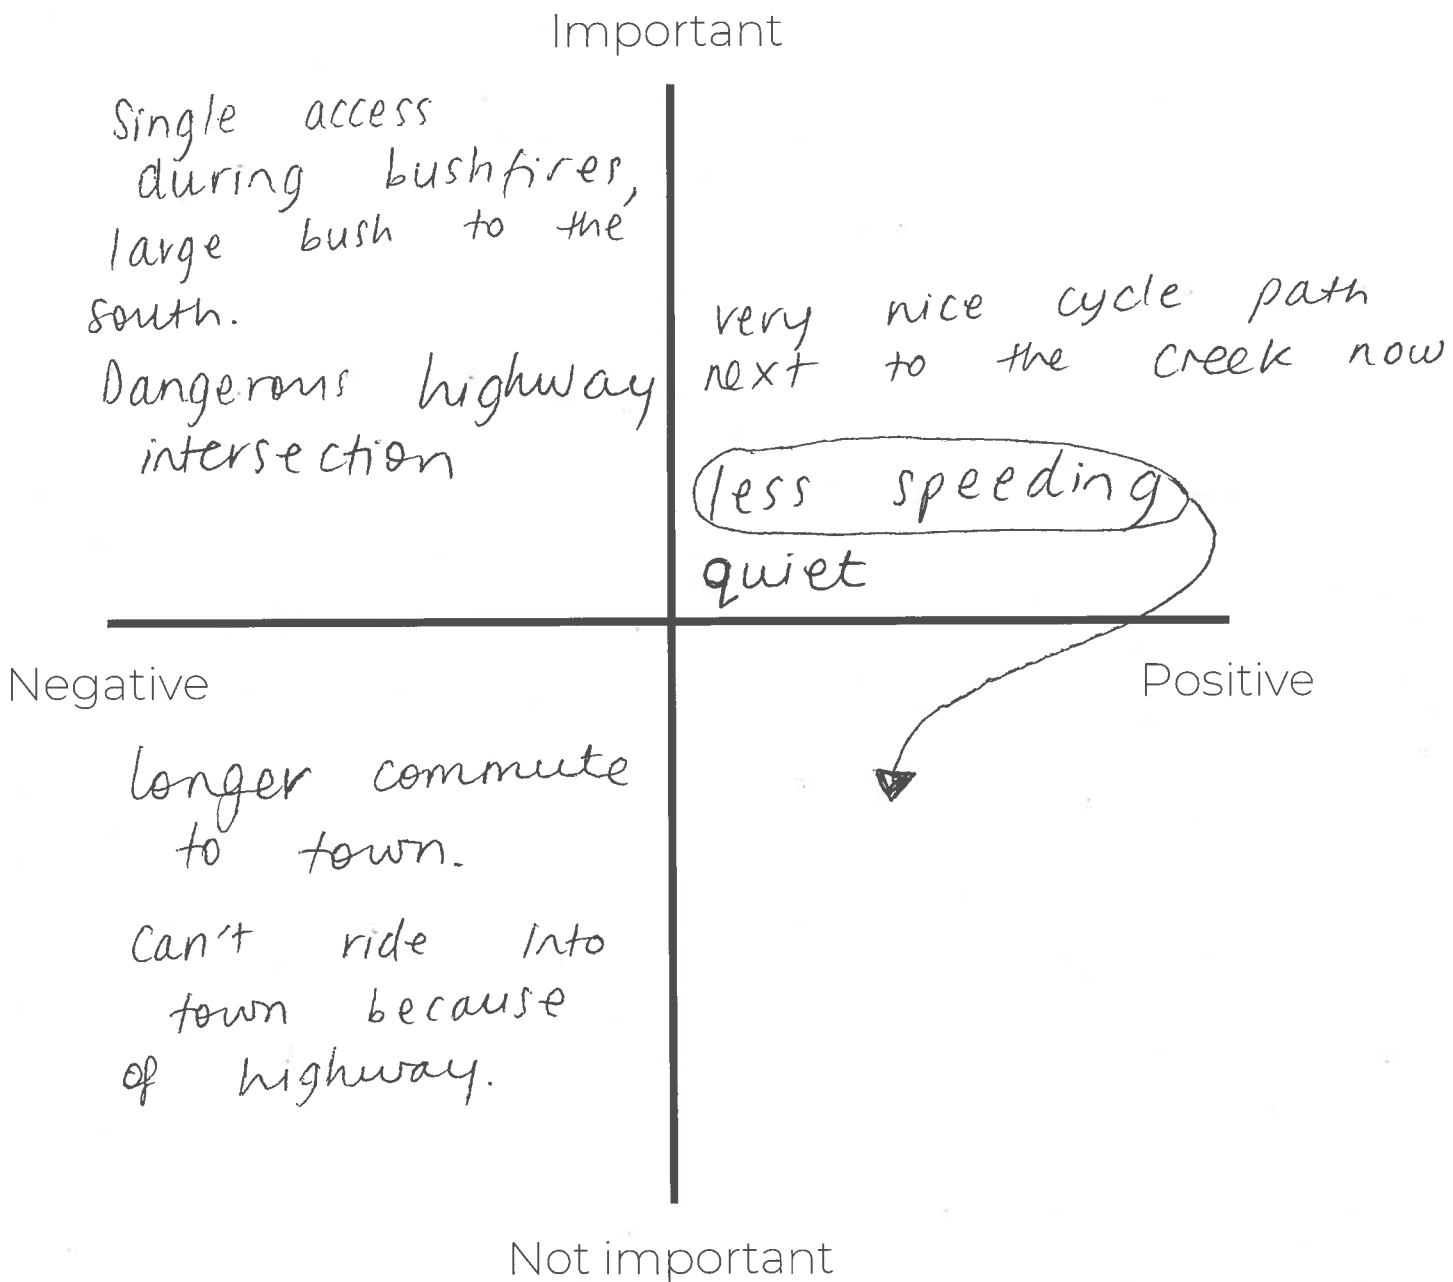 Important
Single access
during bushfires,
large bush to the
south.
Dangerous highway
intersection
very nice cycle path
next to the creek now
less speeding
quiet
Negative
Positive
longer commute
to town.
Can't ride into
town because
of highway.
Not important